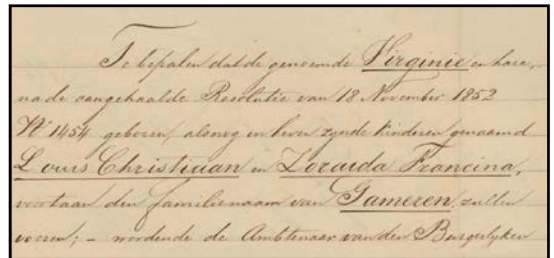 Te bepalen dat de genoemde Virginie en hare,
na de aangehaalde Resolutie van 18 November 1852
N° 1454 geboren, alsnog in leven zynde kinderen genaamd
Louis Christiaan en Zoraida Francina,
voortaan den familienaam van Gameren, zullen
voeren; – wordende de Ambtenaar van den Burgerlyken